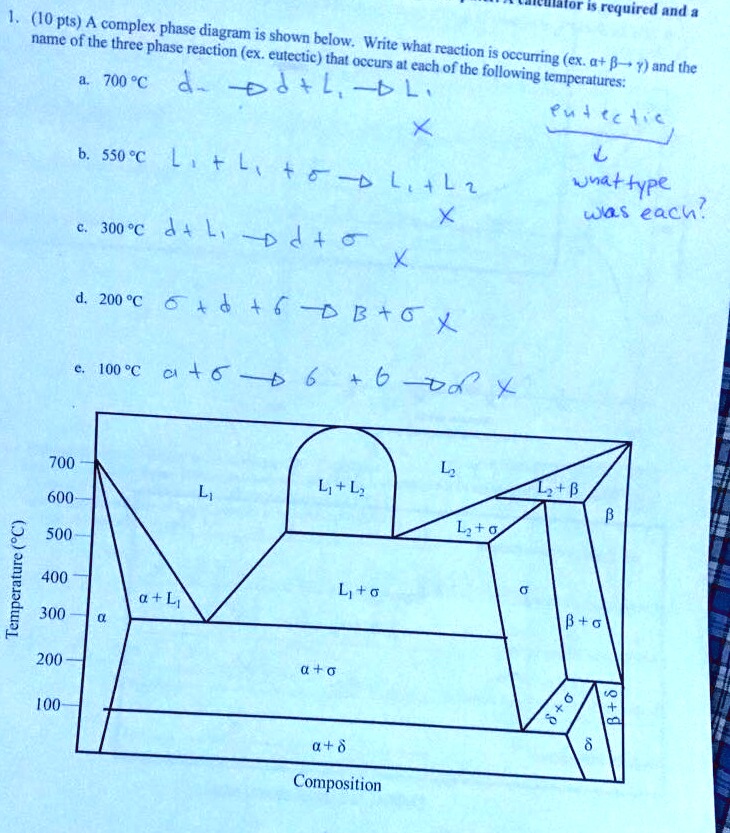 calculator is required and a
1. (10 pts) A complex phase diagram is shown below. Write what reaction is occurring (ex. α+ β→ γ) and the
name of the three phase reaction (ex. eutectic) that occurs at each of the following temperatures:
a. 700 °C d- → d + L, → L,
X
eutectic
↓
what type
was each?
b. 550 °C L₁ + L₁ + σ → L₁ + L2
X
c. 300 °C d + L₁ → d + σ
X
d. 200 °C σ + d + 6 → B + σ X
e. 100 °C a + 6 → 6 + 6 → X
700
600
500
400
300
200
100
Temperature (°C)
L₁
L₁ + L₂
L₂
L₂ + β
β
L₂ + σ
α + L₁
L₁ + σ
σ
α
β + σ
α + σ
δ + σ
β + δ
α + δ
δ
Composition